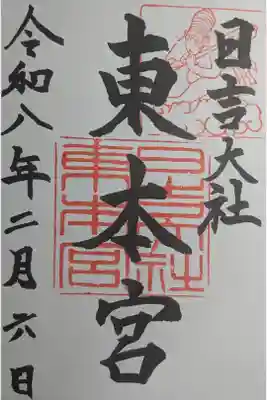 日吉大社
東本宮
日吉大社
東本宮
令和八年二月六日